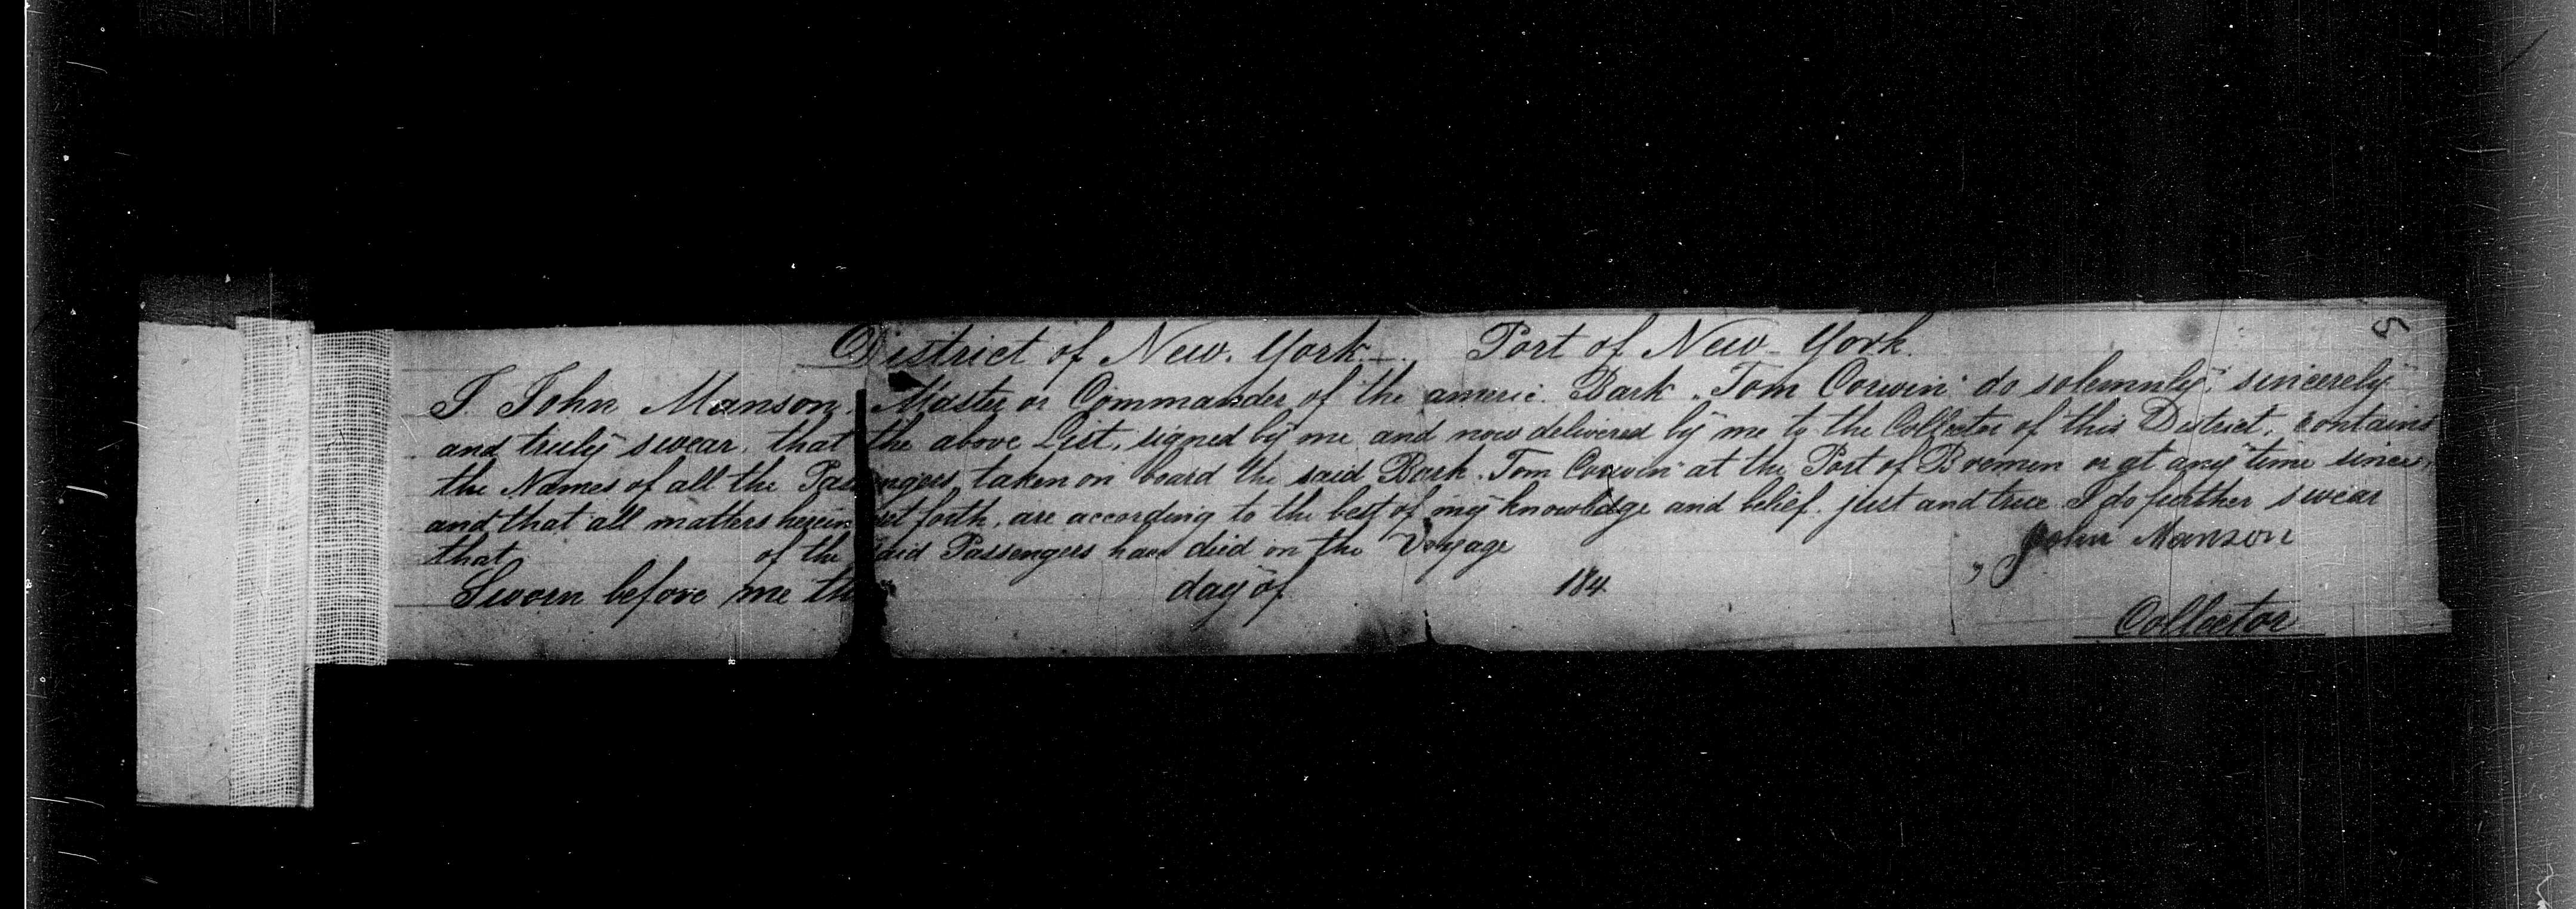 5
District of New. York. Port of New-York.
I. John Manson. Master or Commander of the americ. Bark "Tom Corwin" do solemnly, sincerely
and truly swear, that the above List, signed by me and now delivered by me to the Collector of this District, contains
the Names of all the Passengers taken on board the said Bark "Tom Corwin" at the Port of Bremen or at any time since,
and that all matters herein set forth, are according to the best of my knowledge and belief, just and true I do further swear
that of the said Passengers have died on the Voyage
John Manson
Sworn before me this day of 184
Collector